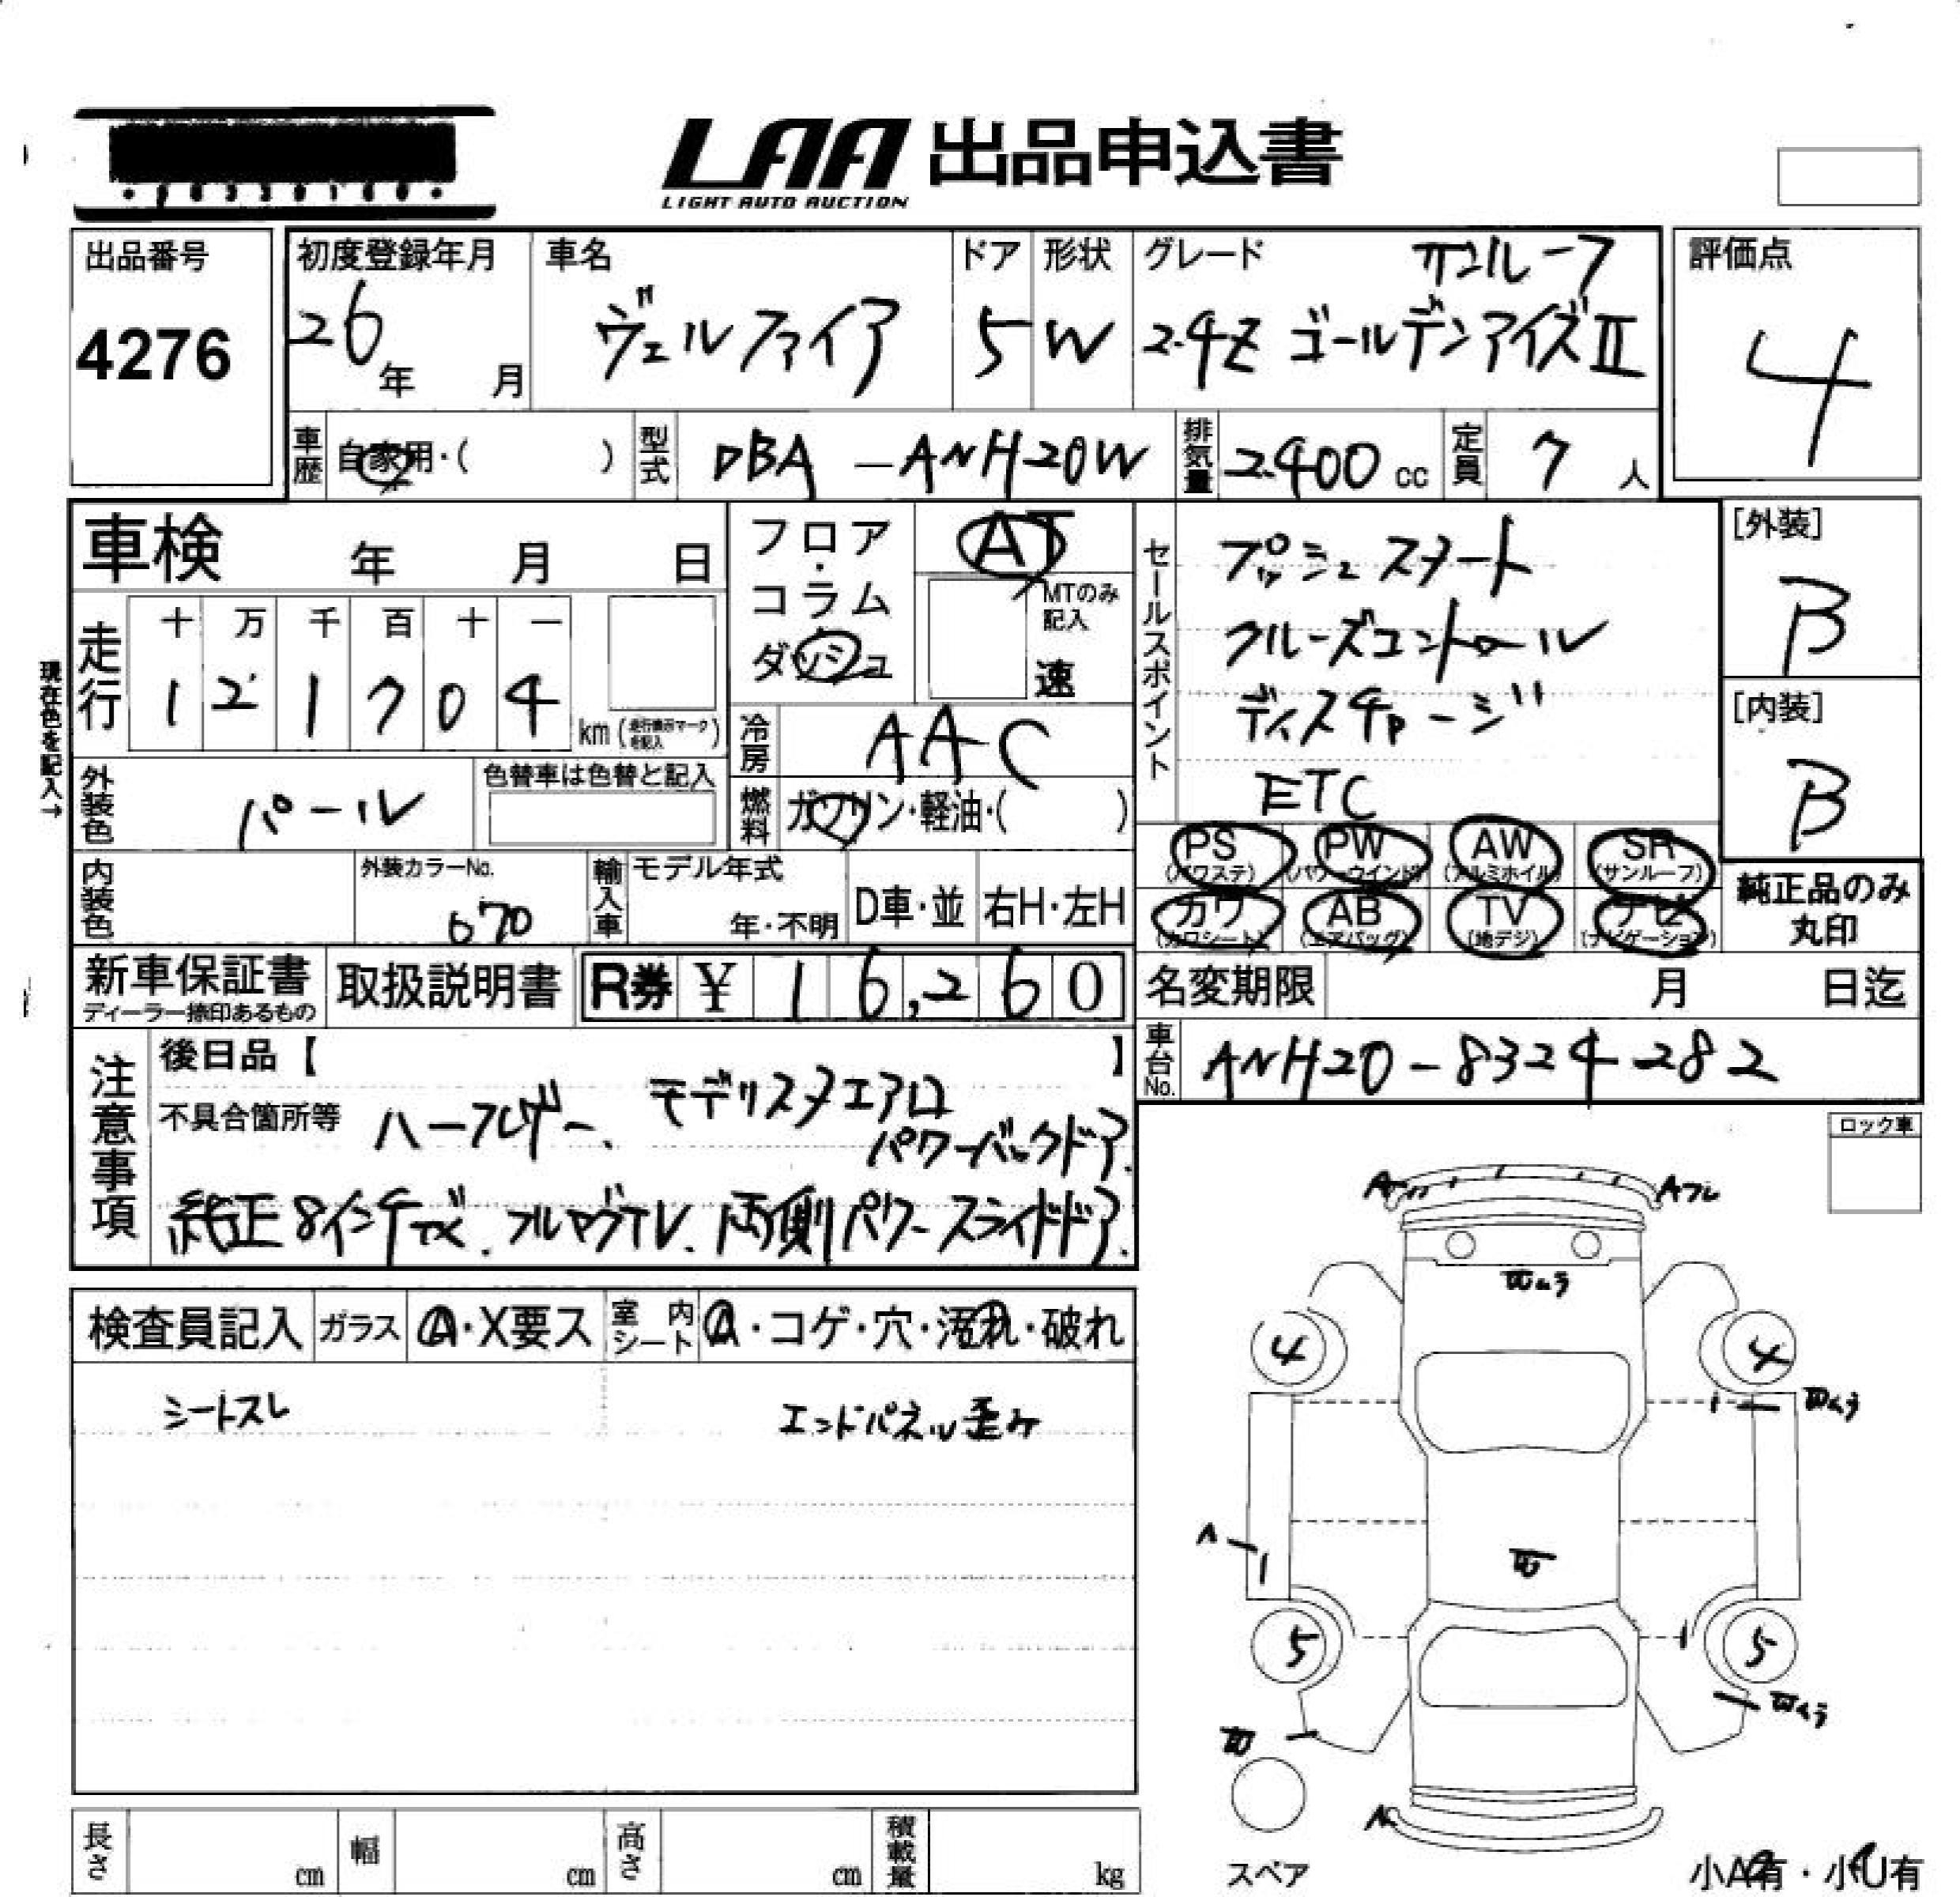 LAA 出品申込書
LIGHT AUTO AUCTION
出品番号
4276
初度登録年月
26年 月
車名
ヴェルファイア
ドア
5
形状
W
グレード
ルーフ
2.4Z ゴールデンアイズⅡ
評価点
4
車歴 自家用・( )
型式 DBA-ANH20W
排気量 2400 cc
定員 7 人
車検 年 月 日
走行 十 万 千 百 十 一
1 2 1 7 0 4 km
現在色を記入→
フロア・コラム・ダッシュ
AT
MTのみ記入
速
冷房 AAC
燃料 ガソリン・軽油・( )
セールスポイント
プッシュスタート
クルーズコントロール
ディスチャージ
ETC
[外装]
B
[内装]
B
外装色 パール
色替車は色替と記入
内装色
外装カラーNo.
070
輸入車 モデル年式
年・不明
D車・並
右H・左H
PS (パワステ)
PW (パワーウインド)
AW (アルミホイル)
SR (サンルーフ)
カワ (カワシート)
AB (エアバッグ)
TV (地デジ)
ナビ (ナビゲーション)
純正品のみ丸印
新車保証書
ディーラー捺印あるもの
取扱説明書
R券 ¥ 16,260
名変期限 月 日迄
車台No. ANH20-8324282
注意事項
後日品【 】
不具合箇所等 ハーフレザー、モデリスタエアロ
パワーバックドア.
純正8インチナビ.フルセグTV.両側パワースライドドア.
ロック車
検査員記入
ガラス A・X要ス
室内シート A・コゲ・穴・汚れ・破れ
シートスレ
エンドパネル歪み
A
Aフレ
4
4
A
5
5
スペア
小A有・小U有
長さ cm
幅 cm
高さ cm
積載量 kg